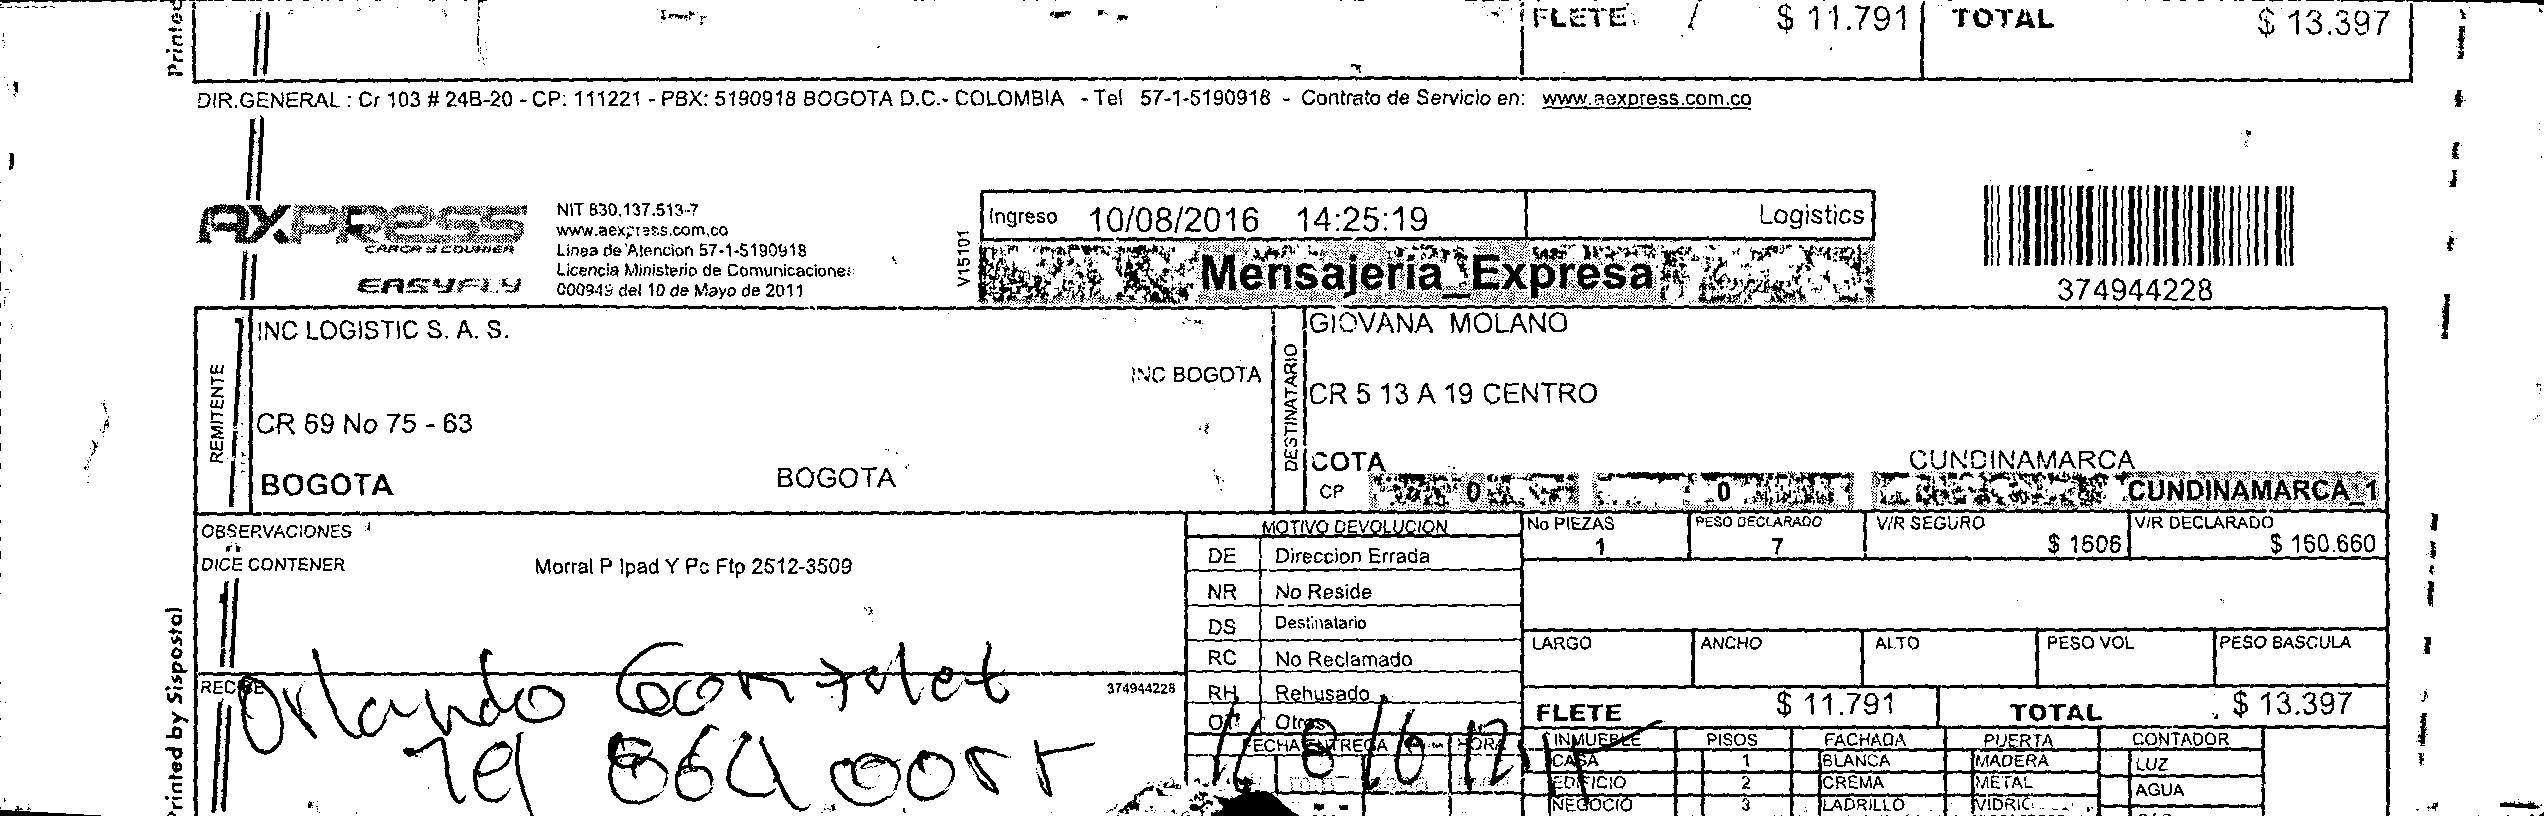 FLETE $ 11.791 TOTAL $ 13.397
DIR.GENERAL : Cr 103 # 24B-20 - CP: 111221 - PBX: 5190918 BOGOTA D.C.- COLOMBIA - Tel 57-1-5190918 - Contrato de Servicio en: www.aexpress.com.co
AXPRESS
CARGA Y COURIER
EASYFLY
NIT 830.137.513-7
www.aexpress.com.co
Linea de Atencion 57-1-5190918
Licencia Ministerio de Comunicaciones
000949 del 10 de Mayo de 2011
V15101
Ingreso 10/08/2016 14:25:19 Logistics
Mensajeria_Expresa
374944228
REMITENTE
INC LOGISTIC S. A. S.
INC BOGOTA
CR 69 No 75 - 63
BOGOTA BOGOTA
DESTINATARIO
GIOVANA MOLANO
CR 5 13 A 19 CENTRO
COTA CUNDINAMARCA
CP 0 0 CUNDINAMARCA_1
OBSERVACIONES
DICE CONTENER Morral P Ipad Y Pc Ftp 2512-3509
MOTIVO DEVOLUCION
DE Direccion Errada
NR No Reside
DS Destinatario
RC No Reclamado
RH Rehusado
OT Otros
No PIEZAS PESO DECLARADO V/R SEGURO V/R DECLARADO
1 7 $ 1606 $ 160.660
LARGO ANCHO ALTO PESO VOL PESO BASCULA
FLETE $ 11.791 TOTAL $ 13.397
RECIBE 374944228
Orlando Gonzalez
Tel 864 00
FECHA ENTREGA HORA
INMUEBLE PISOS FACHADA PUERTA CONTADOR
CASA 1 BLANCA MADERA LUZ
EDIFICIO 2 CREMA METAL AGUA
NEGOCIO 3 LADRILLO VIDRIO
Printed by Sispostal